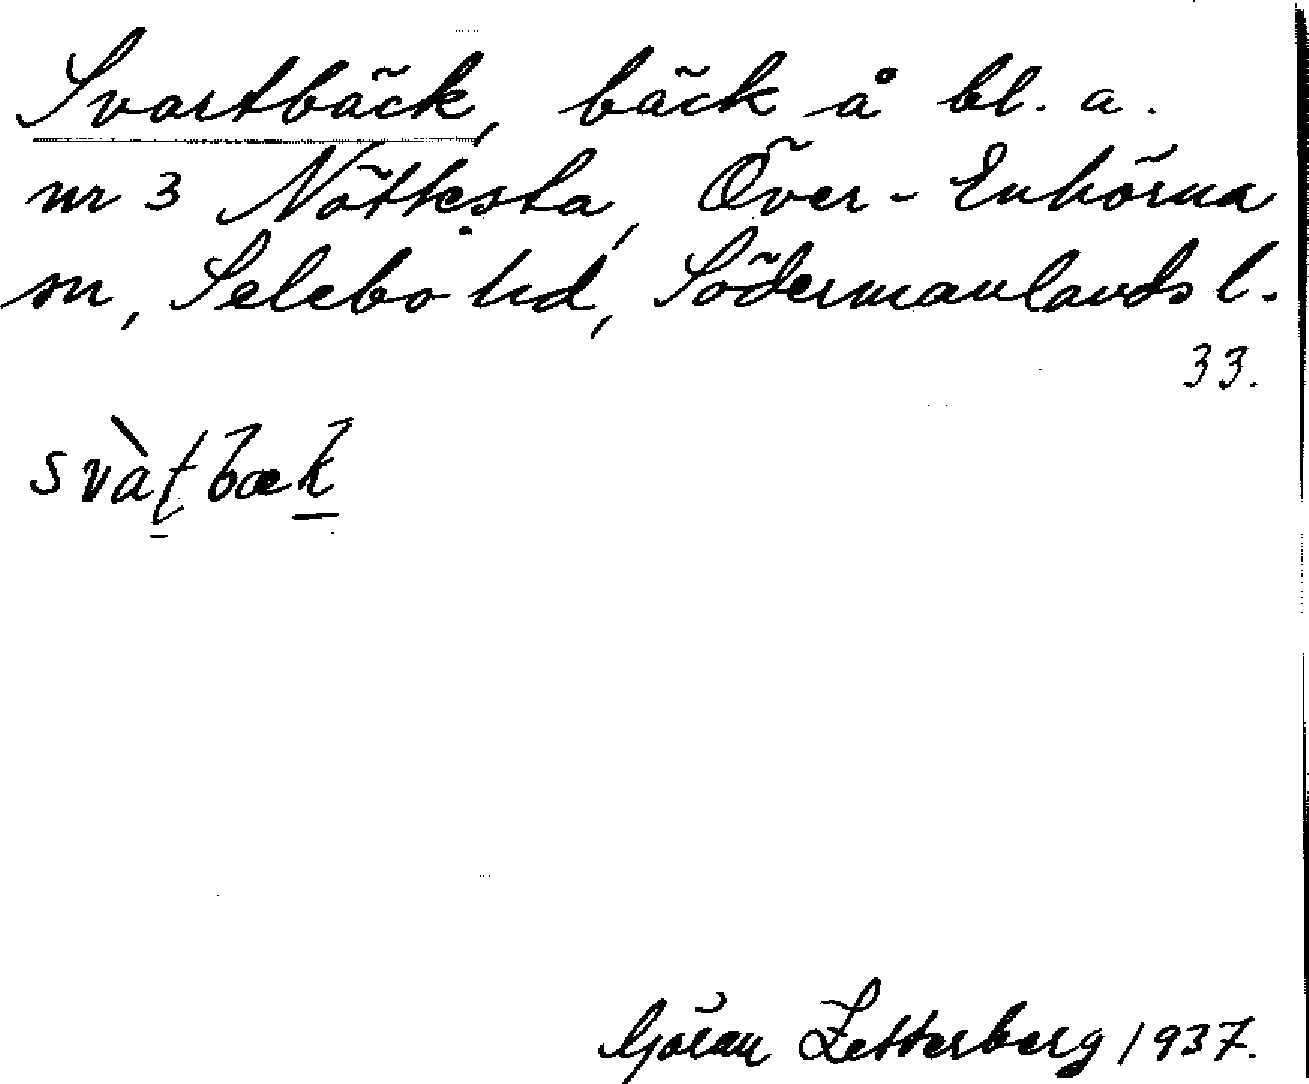 Svartbäck, bäck å bl. a.
nr 3 Nöttesta, Över-Enhörna
sn, Selebo hd, Södermanlands l.
33.
svàʈbæk
Göran Zetterberg 1937.